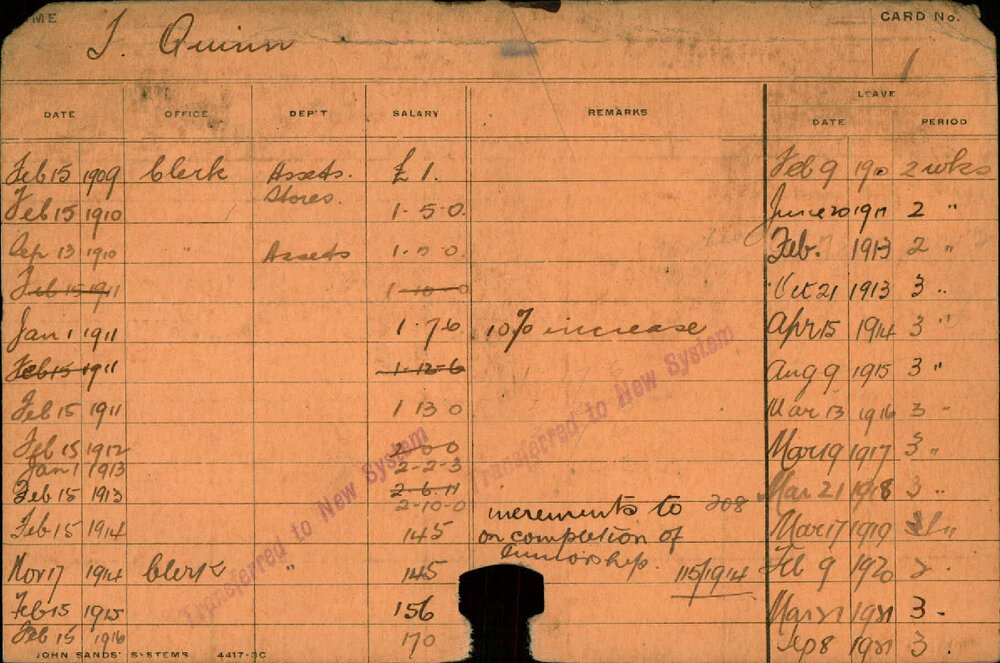 ME
CARD No.
T. Quinn
1
LEAVE
DATE OFFICE DEP'T SALARY REMARKS DATE PERIOD
Feb 15 1909 Clerk Assets. £1. Feb 9 2 wks
Stores.
Feb 15 1910 1-5-0. June 20 1911 2 "
Sep 13 1910 " Assets Feb. 1913 2 "
Feb 15 1911 1-10-0 Oct 21 1913 3 "
Jan 1 1911 1-7-6 10% increase Apr 15 1914 3 "
Feb 15 1911 1-12-6 Aug 9 1915 3 "
Feb 15 1911 1 13 0 Mar 13 1916 3 -
Feb 15 1912 2-0-0 Mar 9 1917 3 "
Jan 1 1913 2-2-3
Feb 15 1913 2-6-11 Mar 21 1918 3 "
2-10-0 increments to 208
Feb 15 1914 145 on completion of Mar 17 1919
Juniorship.
Nov 17 1914 Clerk " 145 115/1914 Feb 9 1920 2 -
Feb 15 1915 156 Mar 21 1921 3 -
Feb 15 1916 170 Sep 8 1921 3 -
Transferred to New System
Transferred to New System
JOHN SANDS' SYSTEMS 4417-3C